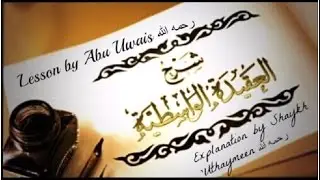 Lesson by Abu Uwais رحمه الله
شرح
العقيدة الواسطية
Explanation by Shaykh
'Uthaymeen رحمه الله